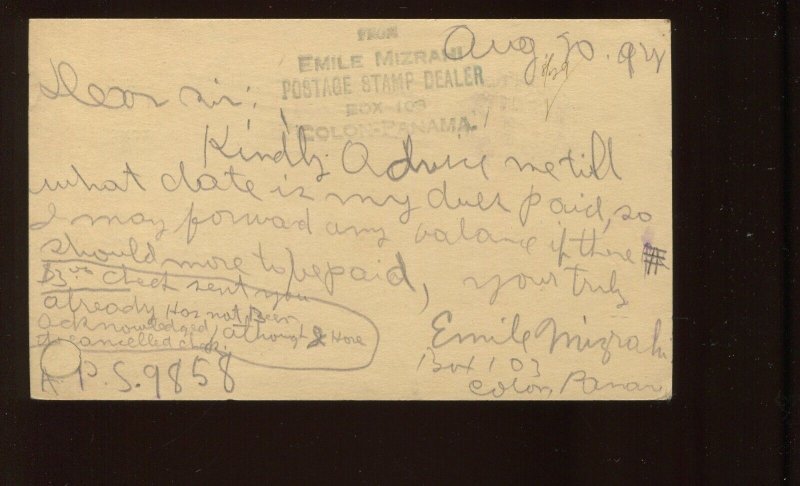 FROM
EMILE MIZRAHI
POSTAGE STAMP DEALER
BOX-103
COLON-PANAMA.
Aug 20.
Dear sir:
Kindly Advice me till
what date is my dues paid, so
I may forward any balance if there
should more to be paid,
yours truly
$3.00 check sent you
already Has not Been
Acknowledged, althought I Have
cancelled check.
Emile Mizrahi
Box 103
Colon, Panam
A.P.S. 9858